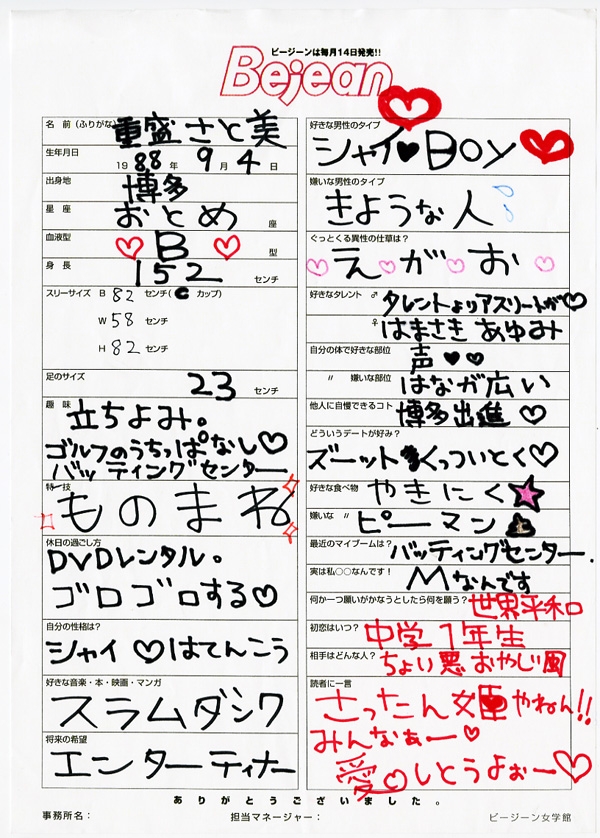 ビージーンは毎月14日発売!!
Bejean
名 前(ふりがな) 重盛さと美
生年月日 1988年 9月 4日
出身地 博多
星 座 おとめ座
血液型 B型
身 長 152センチ
スリーサイズ B 82センチ(Cカップ)
W 58センチ
H 82センチ
足のサイズ 23センチ
趣 味 立ちよみ。
ゴルフのうちっぱなし♡
バッティングセンター
特 技 ものまね
休日の過ごし方
DVDレンタル。
ゴロゴロする♡
自分の性格は?
シャイ♡はてんこう
好きな音楽・本・映画・マンガ
スラムダンク
将来の希望
エンターティナー
好きな男性のタイプ
シャイ♥BOY
嫌いな男性のタイプ
きような人
ぐっとくる異性の仕草は?
えがお
好きなタレント ♂ タレントよりアスリートが♡
♀ はまさきあゆみ
自分の体で好きな部位 声♥♡
〃 嫌いな部位 はなが広い
他人に自慢できるコト 博多出進♡
どういうデートが好み?
ズーットくっついとく♡
好きな食べ物 やきにく★
嫌いな 〃 ピーマン
最近のマイブームは? バッティングセンター.
実は私○○なんです! Mなんです
何か一つ願いがかなうとしたら何を願う? 世界平和
初恋はいつ? 中学1年生
相手はどんな人? ちょい悪おやじ風
読者に一言
さったん姫やねん!!
みんなぁー♡
愛♡しとうよぉー♡
ありがとうございました。
事務所名: 担当マネージャー: ビージーン女学館